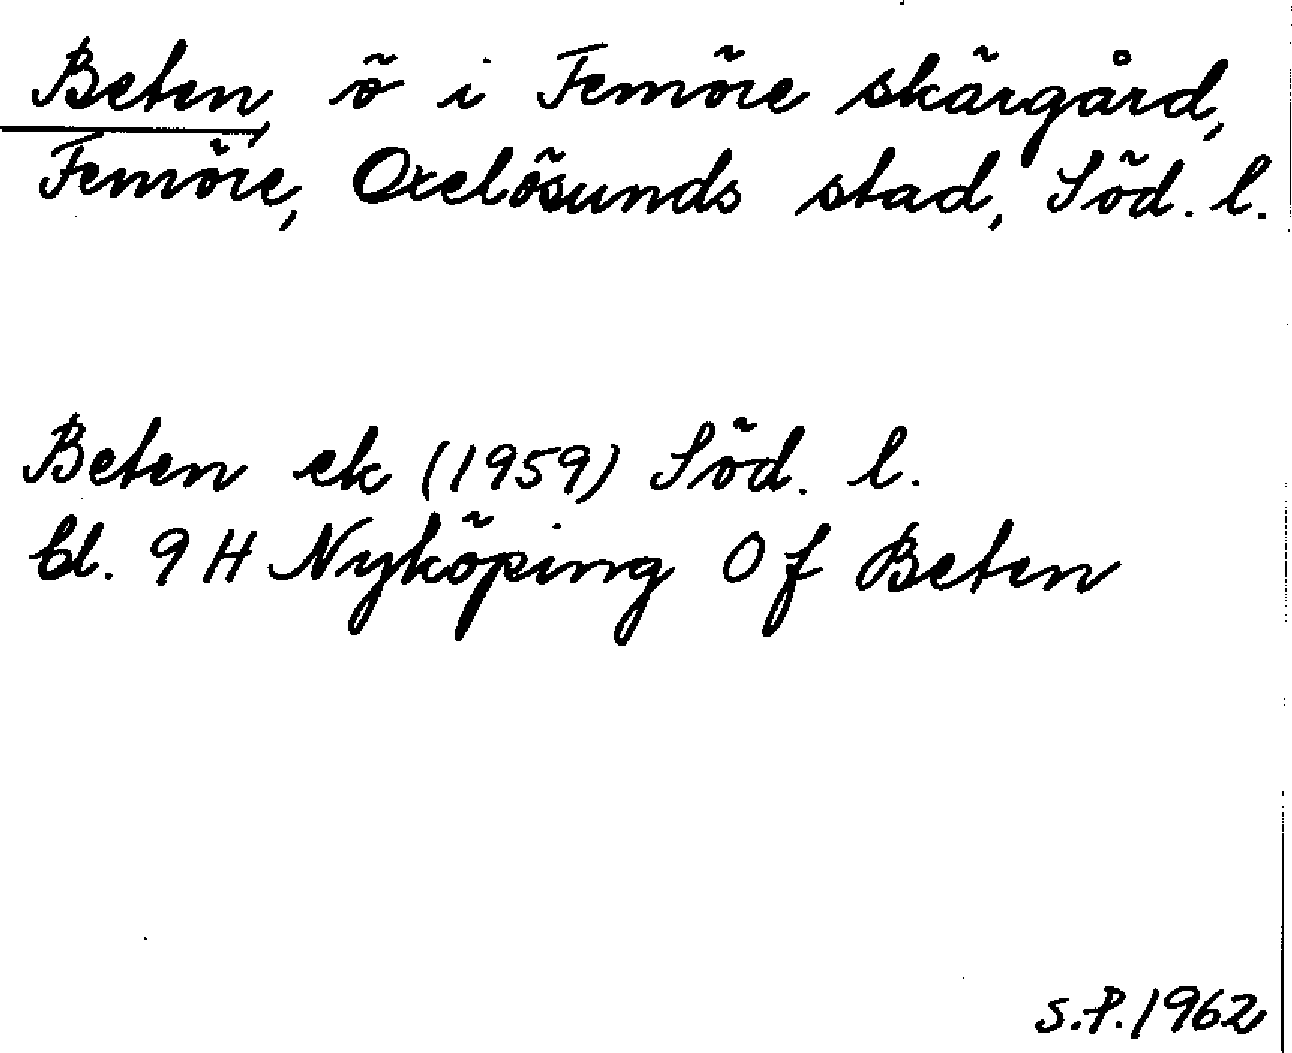 Beten, ö i Femöre skärgård,
Femöre, Oxelösunds stad, Söd. l.
Beten ek (1959) Söd. l.
bl. 9 H Nyköping 0 f Beten
S.P. 1962